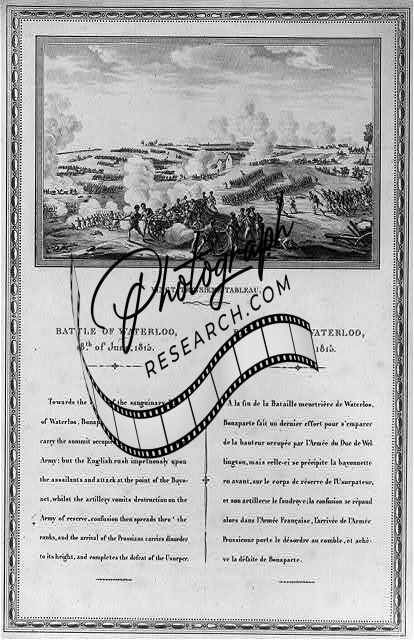 TABLEAU.
Photograph
RESEARCH.COM
BATTLE OF WATERLOO,
of June, 1815.
Towards the of the sanguinary
of Waterloo,
carry the summit
Army; but the English rush impetuously upon
the assailants and attack at the point of the Bayo-
net, whilst the artillery vomits destruction on the
Army of reserve, confusion then spreads thro' the
ranks, and the arrival of the Prussians carries disorder
to its height, and completes the defeat of the Usurper.
WATERLOO,
1815.
A la fin de la Bataille meurtrière de Waterloo,
Bonaparte fait un dernier effort pour s'emparer
de la hauteur occupée par l'Armée du Duc de Wel-
lington, mais celle-ci se précipite la bayonnette
en avant, sur le corps de réserve de l'Usurpateur,
et son artillerie le foudroye; la confusion se répand
alors dans l'Armée Française, l'arrivée de l'Armée
Prussienne porte le désordre au comble, et achè-
ve la défaite de Bonaparte.